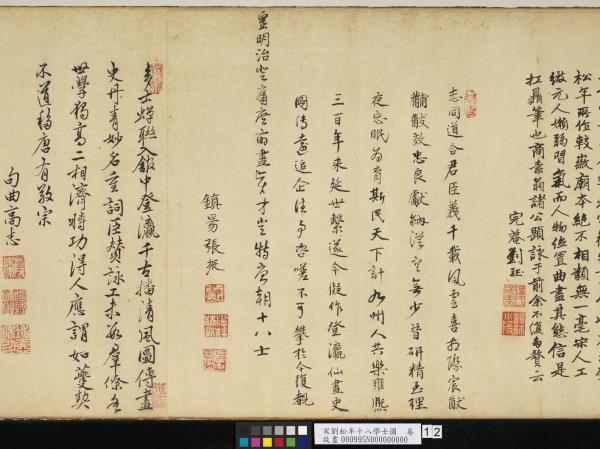 松年所作較徽廟本絕不相類無一毫宋人工
緻元人嫩弱習氣而人物位置曲盡其態信是
扛鼎筆也商素翁諸公題詠于前余不復為贅云
完菴劉珏
志同道合君臣義千載風雲喜相際宸猷
黼黻效忠良獻納從容無少替研精至理
夜忘眠為育斯民天下計九州人共樂雍熙
三百年來延世繫遂令儗作登瀛仙畫史
圖傳遠追企佳句嗟不可攀於今復覩
皇明治登庸盡多才豈特唐朝十八士
鎮易張振
多士蟬聯入館中登瀛千古播清風圖傳畫
史丹青妙名重詞臣贊詠工未必羣僚多
世學獨高二相濟時功得人應謂如夔契
不道唐有敬宗
句曲高志
宋劉松年十八學士圖 卷
故畫 000995N000000000
12